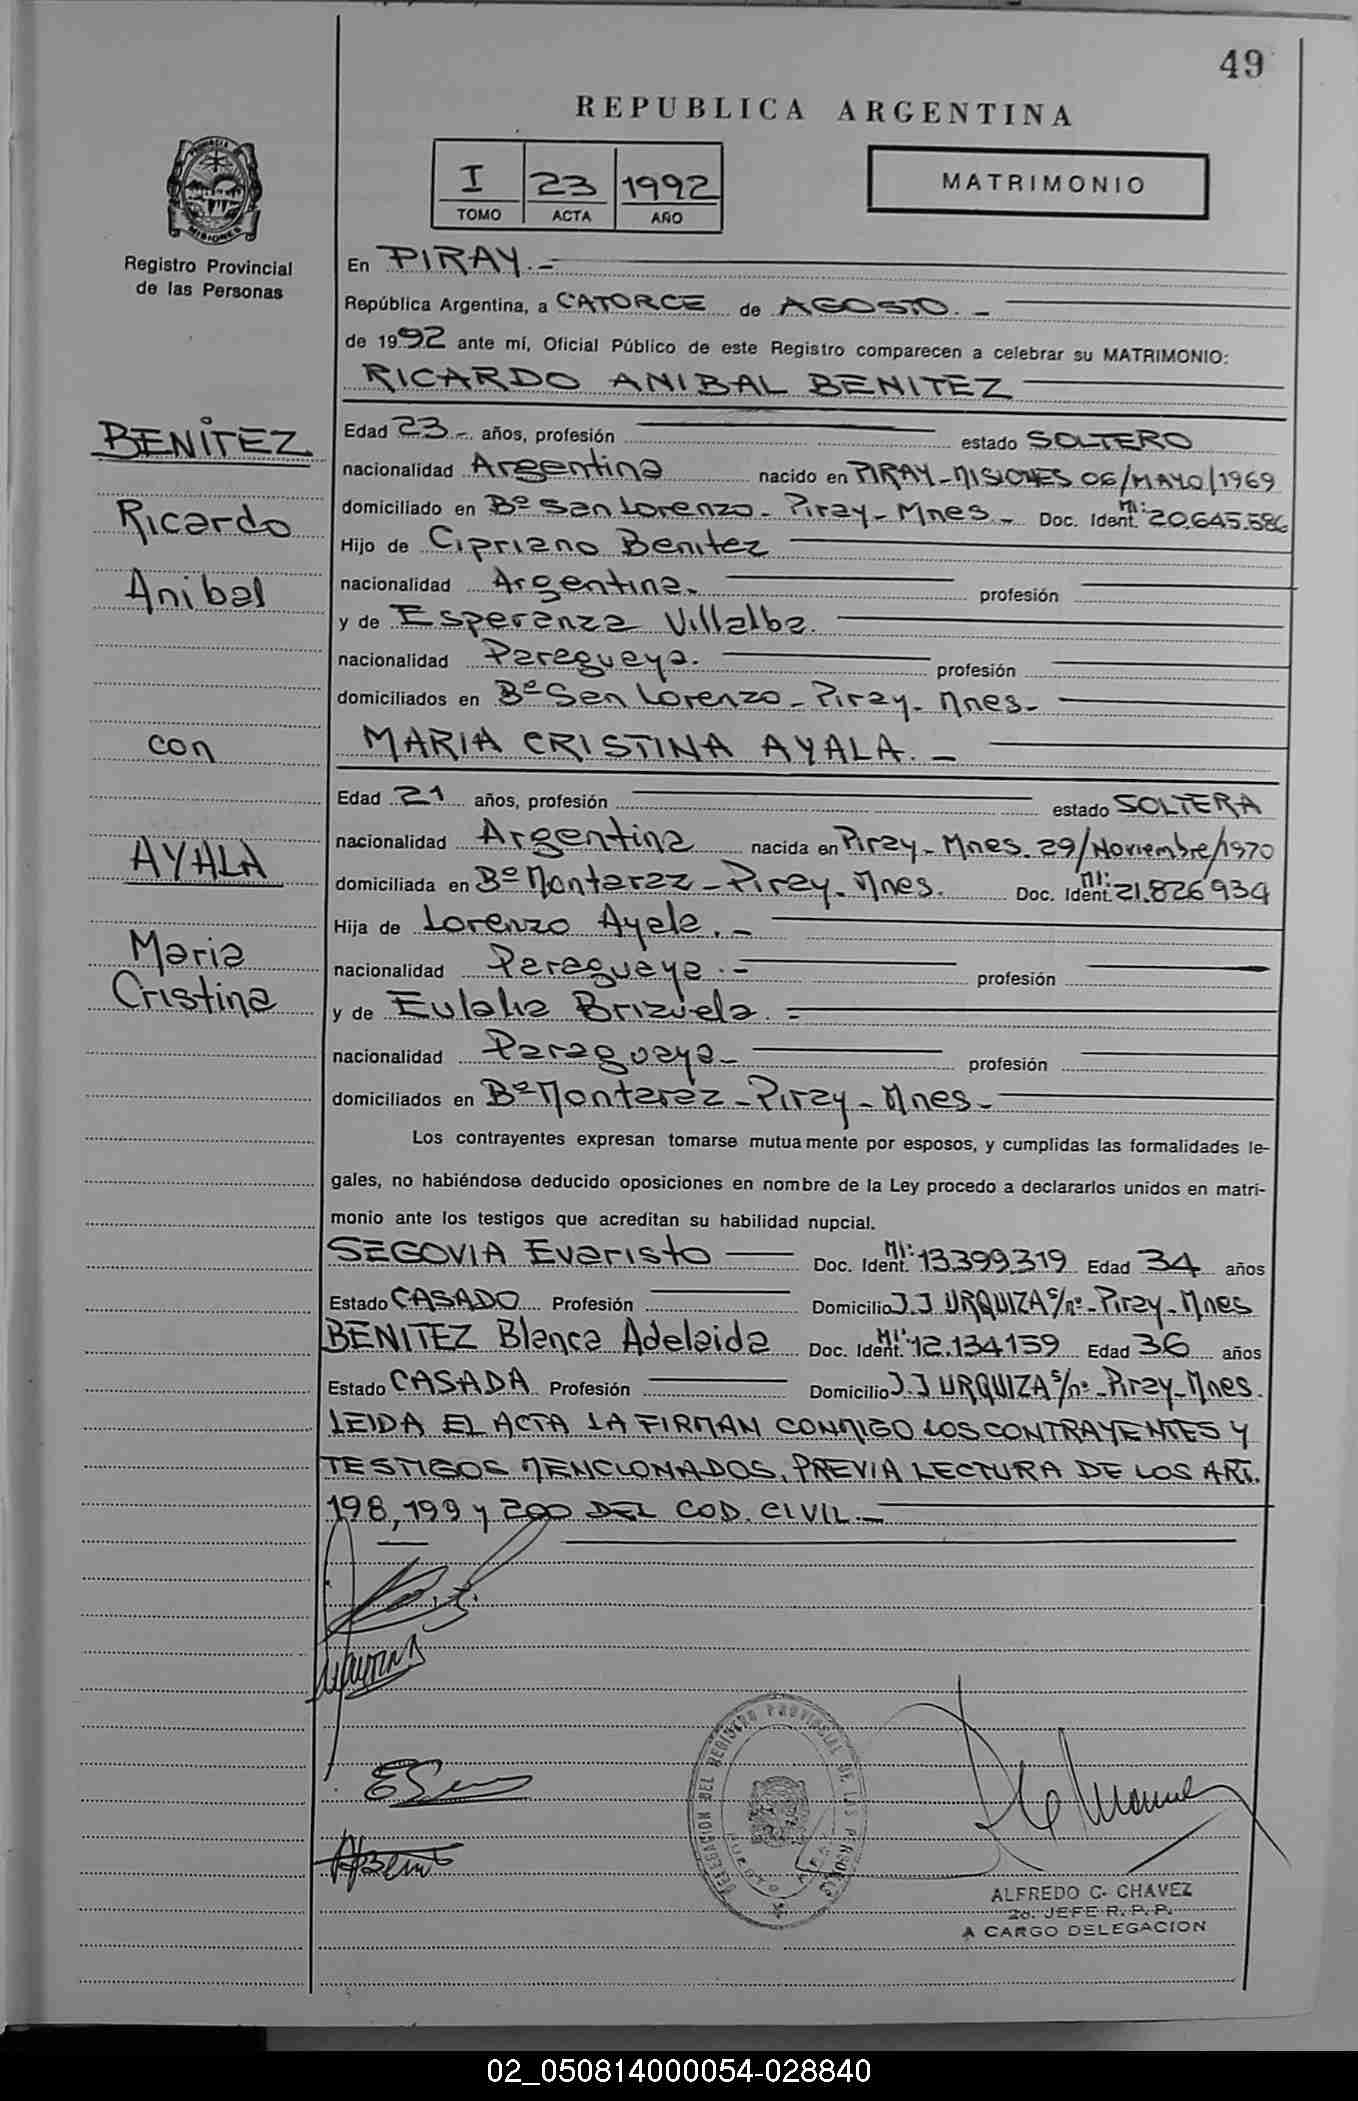 49
REPUBLICA ARGENTINA
PROVINCIA DE
MISIONES
Registro Provincial
de las Personas
I 23 1992
TOMO ACTA AÑO
MATRIMONIO
En PIRAY.-
República Argentina, a CATORCE de AGOSTO.-
de 1992 ante mí, Oficial Público de este Registro comparecen a celebrar su MATRIMONIO:
RICARDO ANIBAL BENITEZ
BENITEZ
Ricardo
Anibal
con
AYALA
Maria
Cristina
Edad 23.- años, profesión estado SOLTERO
nacionalidad Argentina nacido en PIRAY-MISIONES 06/MAYO/1969
domiciliado en Bº San Lorenzo- Piray- Mnes- Doc. Ident. MI: 20.645.586
Hijo de Cipriano Benitez
nacionalidad Argentina. profesión
y de Esperanza Villalba.
nacionalidad Paraguaya. profesión
domiciliados en Bº San Lorenzo- Piray- Mnes-
MARIA CRISTINA AYALA.-
Edad 21 años, profesión estado SOLTERA
nacionalidad Argentina nacida en Piray- Mnes. 29/Noviembre/1970
domiciliada en Bº Montaraz- Piray- Mnes. Doc. Ident. MI: 21.826934
Hija de Lorenzo Ayala.-
nacionalidad Paraguaya.- profesión
y de Eulalia Brizuela.-
nacionalidad Paraguaya- profesión
domiciliados en Bº Montaraz- Piray- Mnes-
Los contrayentes expresan tomarse mutuamente por esposos, y cumplidas las formalidades le-
gales, no habiéndose deducido oposiciones en nombre de la Ley procedo a declararlos unidos en matri-
monio ante los testigos que acreditan su habilidad nupcial.
SEGOVIA Evaristo Doc. Ident. MI: 13.399.319 Edad 34 años
Estado CASADO Profesión Domicilio J.J URQUIZA s/nº- Piray- Mnes
BENITEZ Blanca Adelaida Doc. Ident. MI: 12.134.159 Edad 36 años
Estado CASADA Profesión Domicilio J.J URQUIZA s/nº- Piray- Mnes.
LEIDA EL ACTA LA FIRMAN CONMIGO LOS CONTRAYENTES Y
TESTIGOS MENCIONADOS, PREVIA LECTURA DE LOS ART.
198, 199 y 200 DEL COD. CIVIL.-
DELEGACION DEL REGISTRO PROVINCIAL DE LAS PERSONAS
ALFREDO C. CHAVEZ
2o. JEFE R. P. P.
A CARGO DELEGACION
02_050814000054-028840